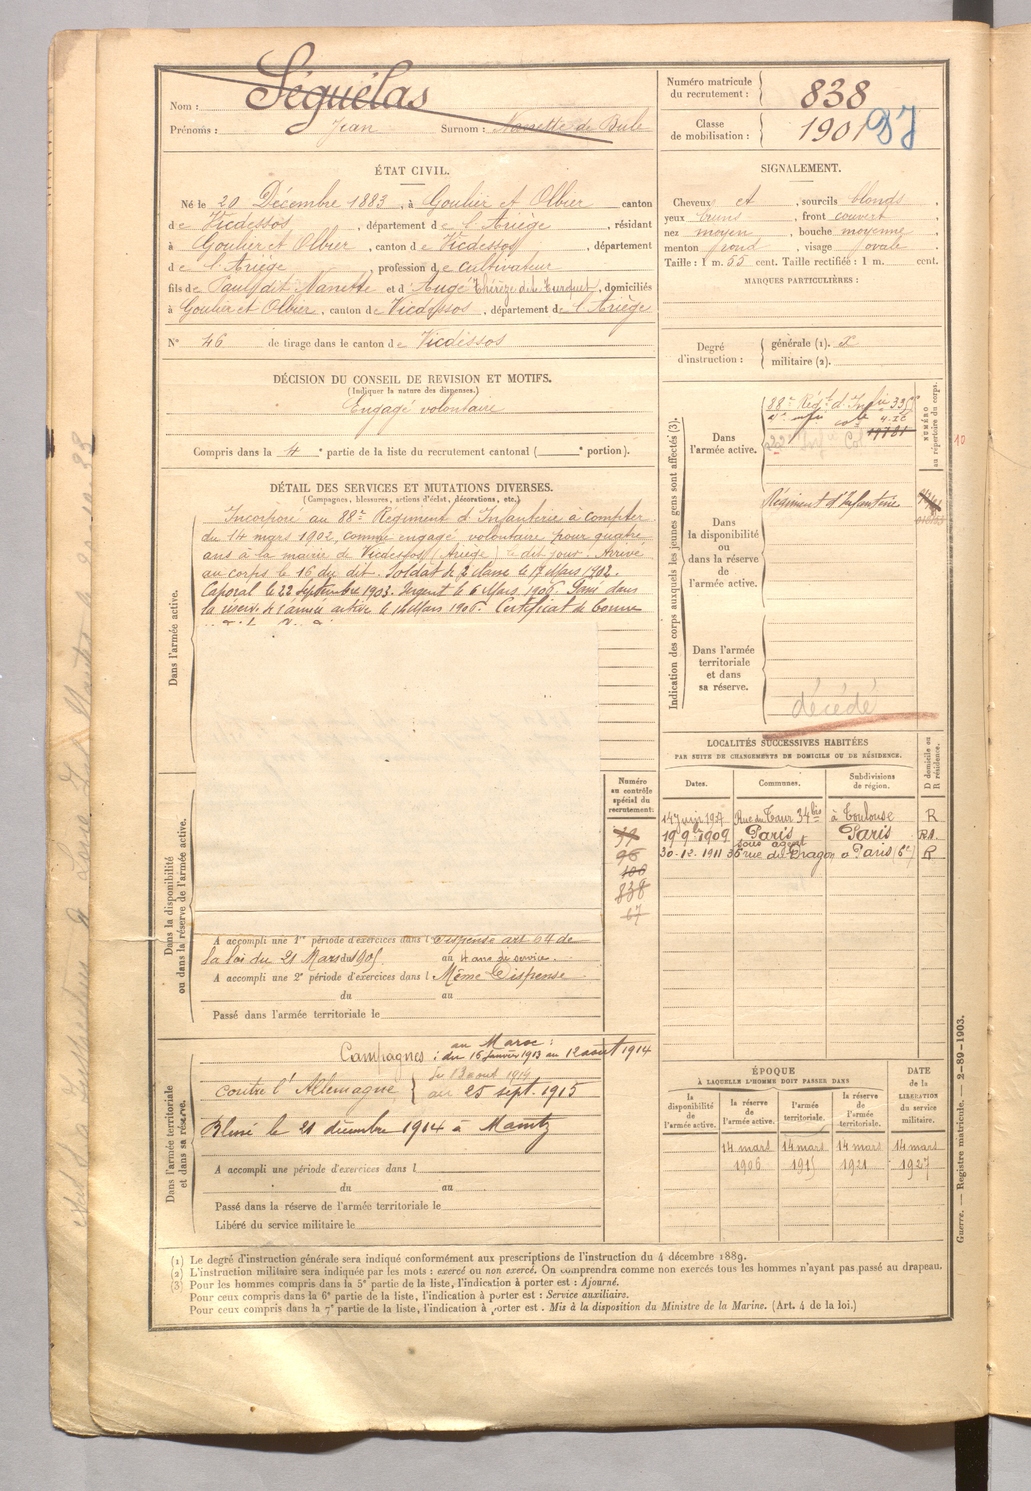 Nom : Séguélas
Prénoms : Jean Surnom : Nanette de Bule
Numéro matricule du recrutement : 838
Classe de mobilisation : 1901
ÉTAT CIVIL.
Né le 20 Décembre 1883, à Goulier et Olbier canton
de Vicdessos, département de l'Ariège, résidant
à Goulier et Olbier, canton de Vicdessos, département
de l'Ariège, profession de cultivateur
fils de Paul dit Nanette et d'Augé Thérèze dite Turquet, domiciliés
à Goulier et Olbier, canton de Vicdessos, département de l'Ariège
N° 46 de tirage dans le canton de Vicdessos
SIGNALEMENT.
Cheveux et, sourcils blonds,
yeux bruns, front couvert,
nez moyen, bouche moyenne,
menton rond, visage ovale.
Taille : 1 m. 55 cent. Taille rectifiée : 1 m. cent.
MARQUES PARTICULIÈRES :
Degré d'instruction : générale (1). 2
militaire (2).
DÉCISION DU CONSEIL DE REVISION ET MOTIFS.
(Indiquer la nature des dispenses.)
Engagé volontaire
Compris dans la 4e partie de la liste du recrutement cantonal (e portion).
DÉTAIL DES SERVICES ET MUTATIONS DIVERSES.
(Campagnes, blessures, actions d'éclat, décorations, etc.)
Dans l'armée active.
Incorporé au 88e Régiment d'Infanterie à compter
du 14 mars 1902, comme engagé volontaire pour quatre
ans à la mairie de Vicdessos (Ariège) le dit jour. Arrivé
au corps le 16 du dit. Soldat de 2e classe le 17 Mars 1902.
Caporal le 22 septembre 1903. Sergent le 6 Mars 1906. Passé dans
la réserve de l'armée active le 14 Mars 1906. Certificat de bonne
Indication des corps auxquels les jeunes gens sont affectés (3).
NUMÉRO au répertoire du corps.
Dans l'armée active.
88e Régt d'Infie
Dans la disponibilité ou dans la réserve de l'armée active.
Régiment d'Infanterie
Dans l'armée territoriale et dans sa réserve.
décédé
LOCALITÉS SUCCESSIVES HABITÉES
PAR SUITE DE CHANGEMENTS DE DOMICILE OU DE RÉSIDENCE.
Dates. Communes. Subdivisions de région. D domicile ou R résidence.
Rue du Taur 34bis à Toulouse R
1909 Paris Paris
sous agent
30-12-1911 36 rue du Dragon à Paris (6e) R
Dans la disponibilité ou dans la réserve de l'armée active.
Numéro au contrôle spécial du recrutement:
79
96
100
838
67
A accompli une 1re période d'exercices dans l Dispensé art 64 de
la loi du 21 Mars 1905 au 4 ans de service.
A accompli une 2e période d'exercices dans l Même Dispense
du au
Passé dans l'armée territoriale le
Dans l'armée territoriale et dans sa réserve.
Campagnes : au Maroc :
du 16 janvier 1913 au 12 août 1914
contre l'Allemagne du 13 août 1914
au 25 sept. 1915
Blessé le 21 décembre 1914 à
A accompli une période d'exercices dans l
du au
Passé dans la réserve de l'armée territoriale le
Libéré du service militaire le
ÉPOQUE
À LAQUELLE L'HOMME DOIT PASSER DANS
la disponibilité de l'armée active. la réserve de l'armée active. l'armée territoriale. la réserve de l'armée territoriale. DATE de la LIBÉRATION du service militaire.
14 mars 14 mars 14 mars 14 mars
1906 1915 1921 1927
(1) Le degré d'instruction générale sera indiqué conformément aux prescriptions de l'instruction du 4 décembre 1889.
(2) L'instruction militaire sera indiquée par les mots : exercé ou non exercé. On comprendra comme non exercés tous les hommes n'ayant pas passé au drapeau.
(3) Pour les hommes compris dans la 5e partie de la liste, l'indication à porter est : Ajourné.
Pour ceux compris dans la 6e partie de la liste, l'indication à porter est : Service auxiliaires.
Pour ceux compris dans la 7e partie de la liste, l'indication à porter est. Mis à la disposition du Ministre de la Marine. (Art. 4 de la loi.)
Guerre. — Registre matricule. — 2-89-1903.